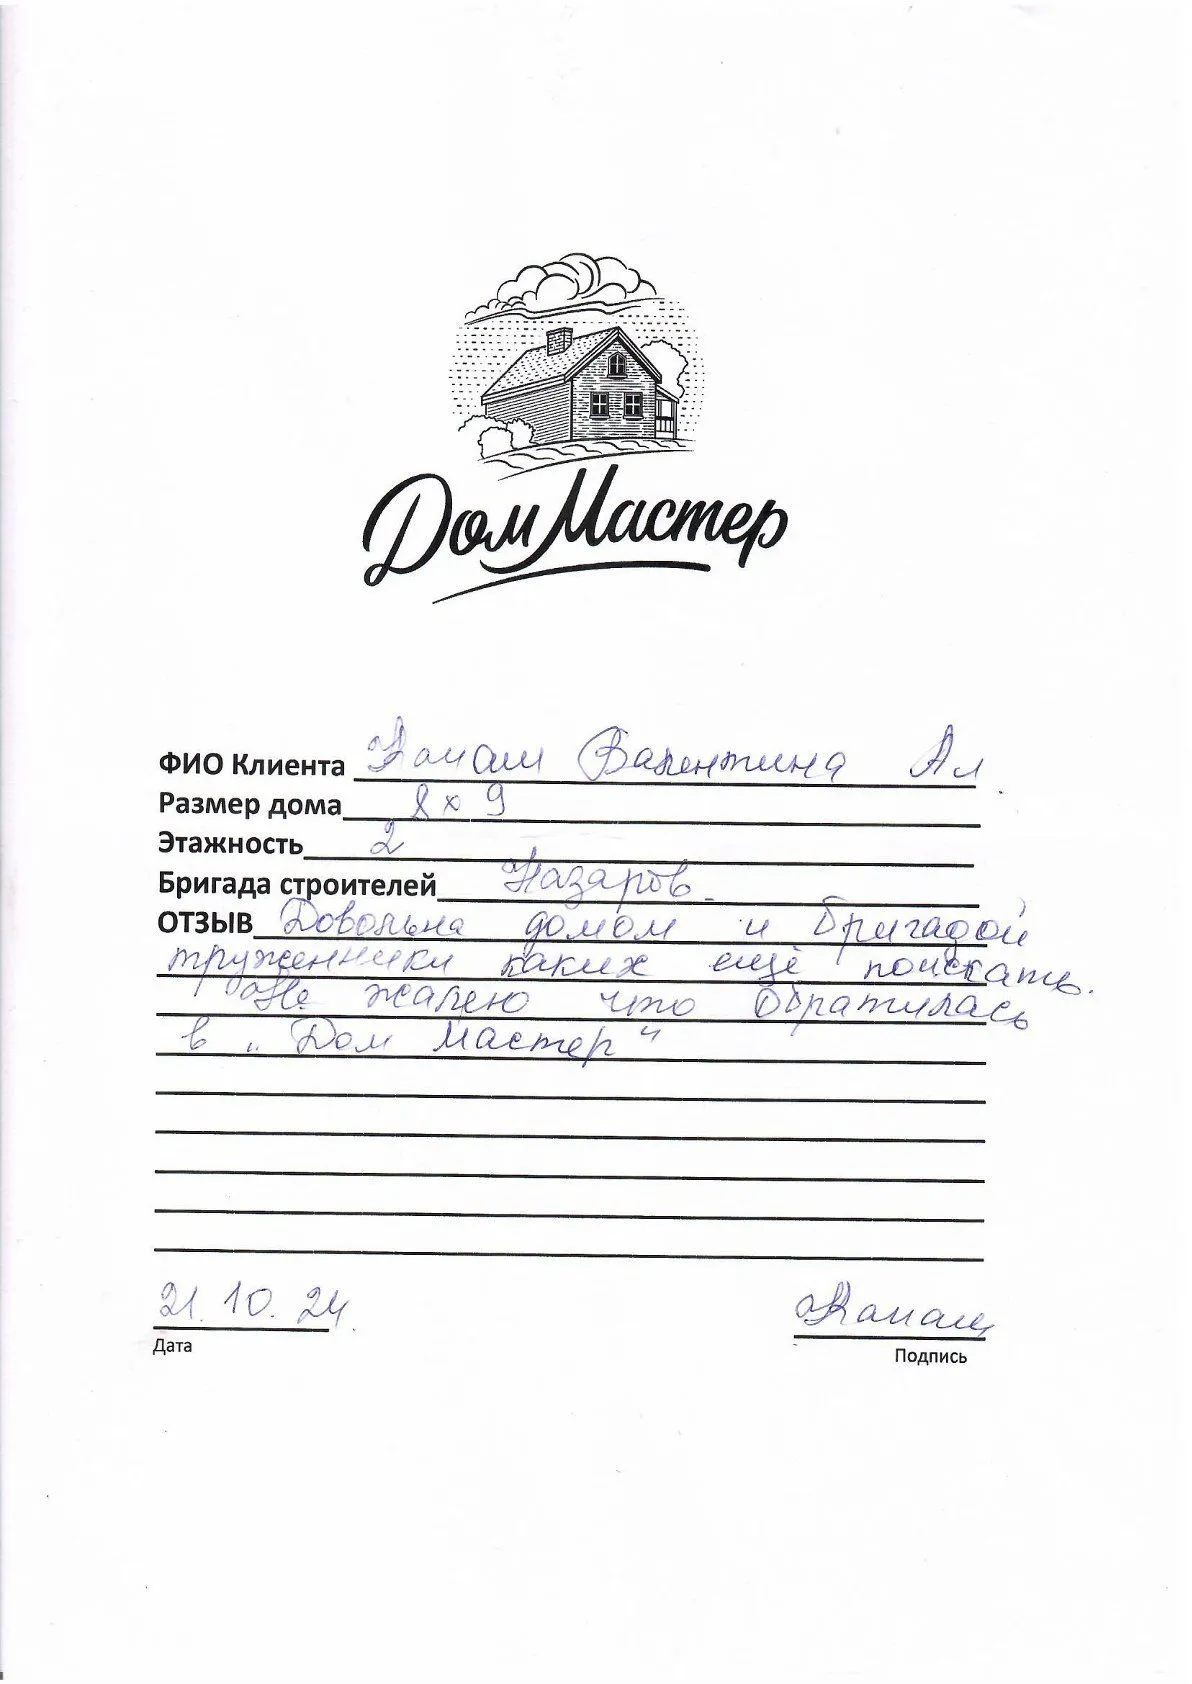 Дом Мастер
ФИО Клиента Валентина Ал
Размер дома 8 х 9
Этажность 2
Бригада строителей Назаров
ОТЗЫВ Довольна домом и бригадой
труженники каких ещё поискать.
Не жалею что обратилась
в "Дом Мастер"
21.10.24
Дата
Подпись